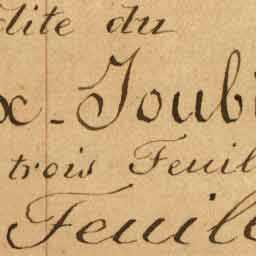 dite du
x-Joubi
trois Feuil
Feuille